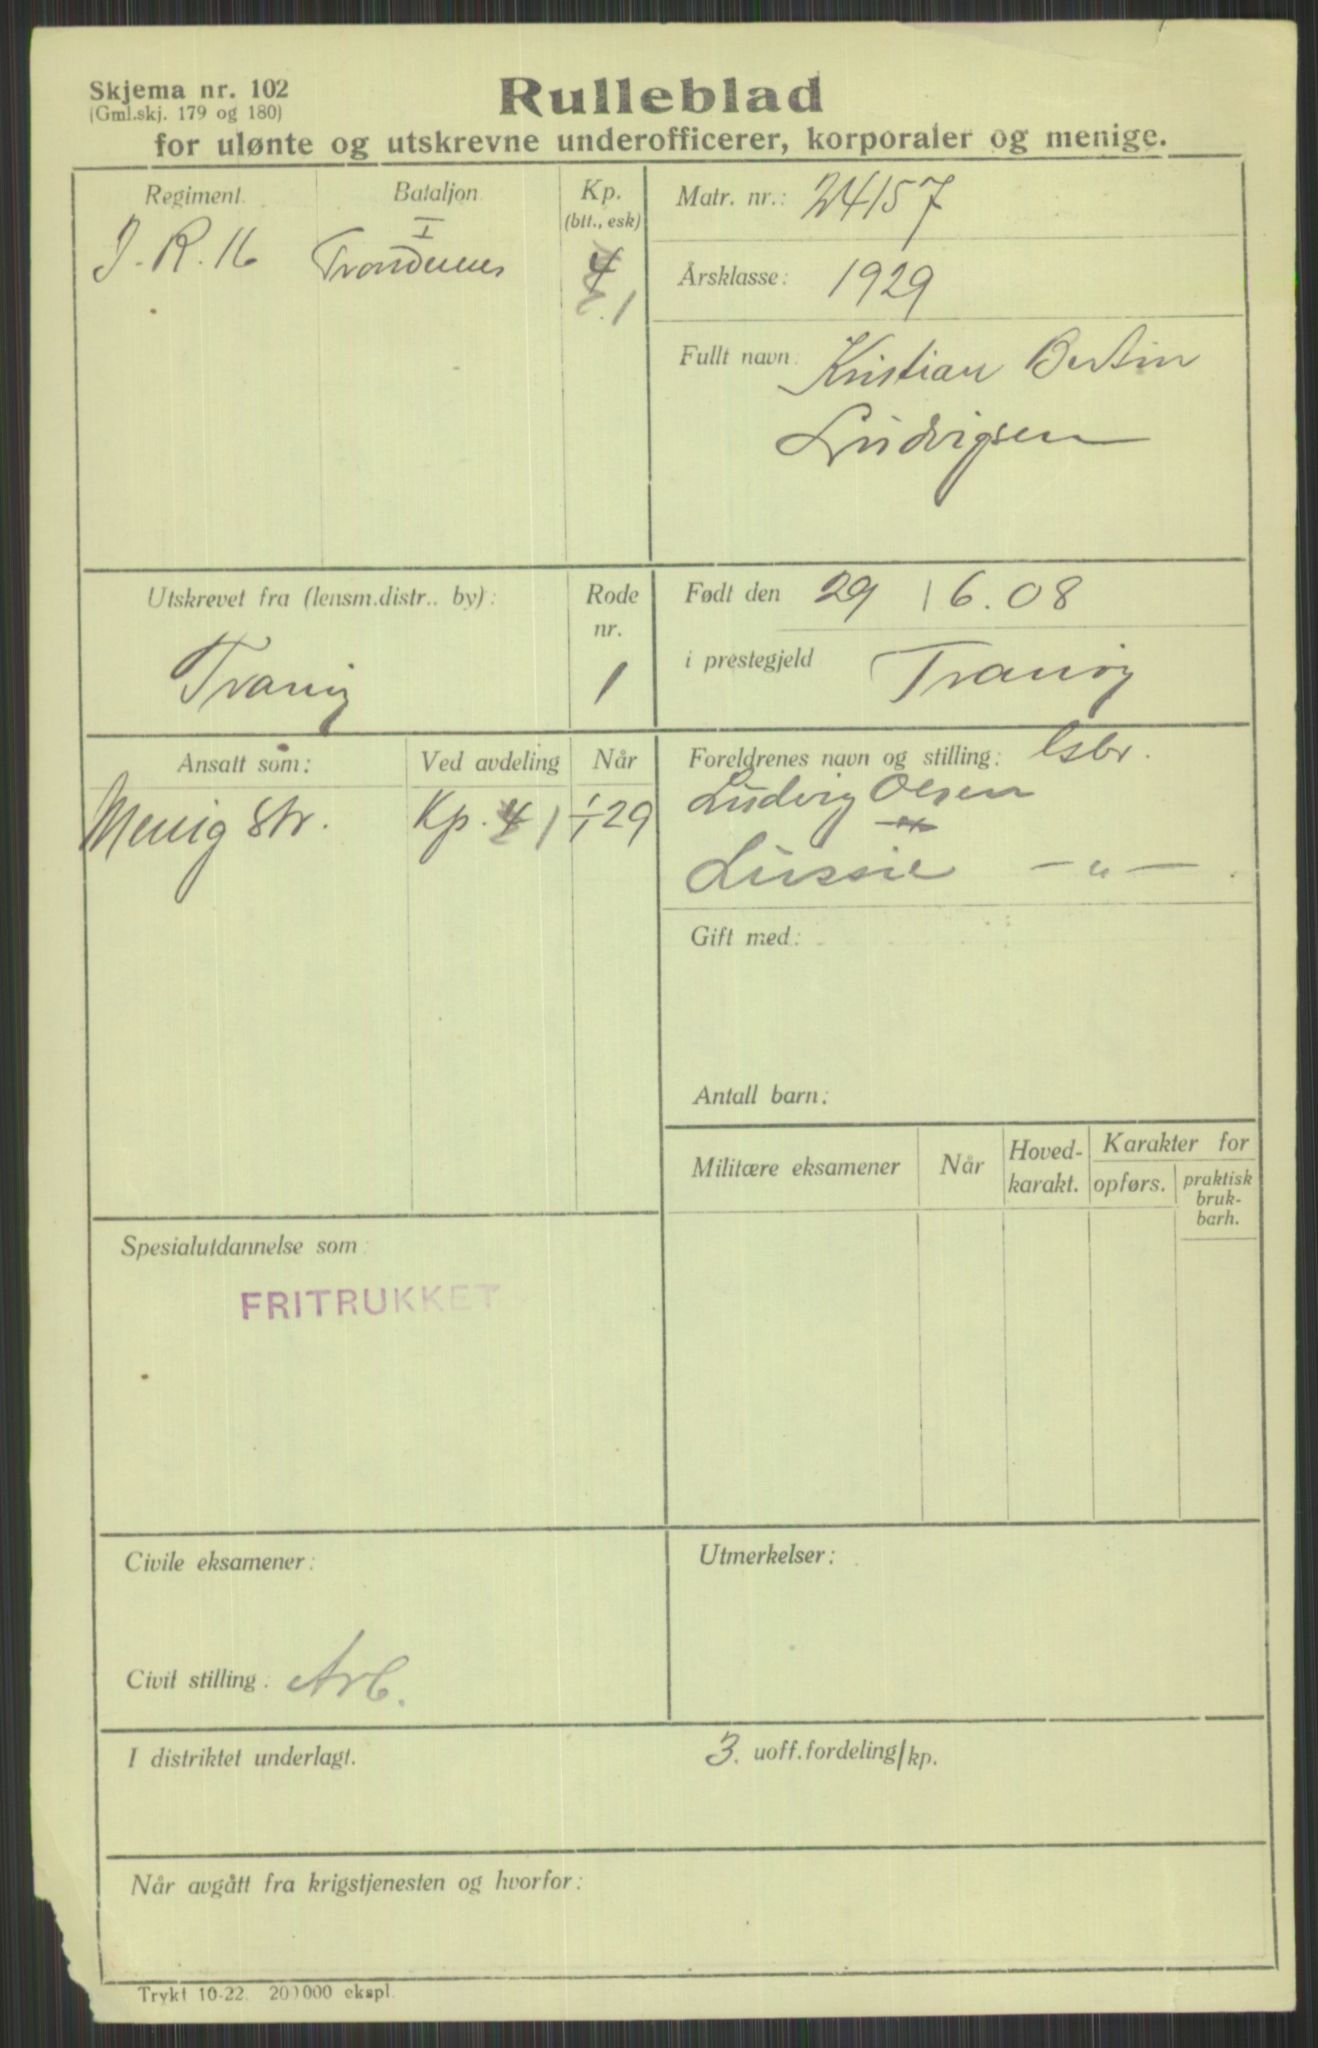 Skjema nr. 102
(Gml.skj. 179 og 180)
Rulleblad
for ulønte og utskrevne underofficerer, korporaler og menige.
Regiment.
Bataljon
Kp.
(btt., esk)
J. R. 16
I
Trondenes
4
1
Matr. nr.: 24157
Årsklasse: 1929
Fullt navn: Kristian Bertin
Ludvigsen
Utskrevet fra (lensm.distr.. by):
Tranøy
Rode
nr.
1
Født den 29 / 6. 08
i prestegjeld Tranøy
Ansatt som:
Ved avdeling
Når
Menig str.
Kp. 4 1
1/1 29
Foreldrenes navn og stilling: Gsbr.
Ludvig Olsen
Lussie — „ — .
Gift med:
Antall barn:
Militære eksamener
Når
Hoved-
karakt.
Karakter for
opførs.
praktisk
bruk-
barh.
Spesialutdannelse som:
FRITRUKKET
Civile eksamener:
Civil stilling: Arb.
Utmerkelser:
I distriktet underlagt.
3. uoff.fordeling/kp.
Når avgått fra krigstjenesten og hvorfor:
Trykt 10-22. 200000 ekspl.